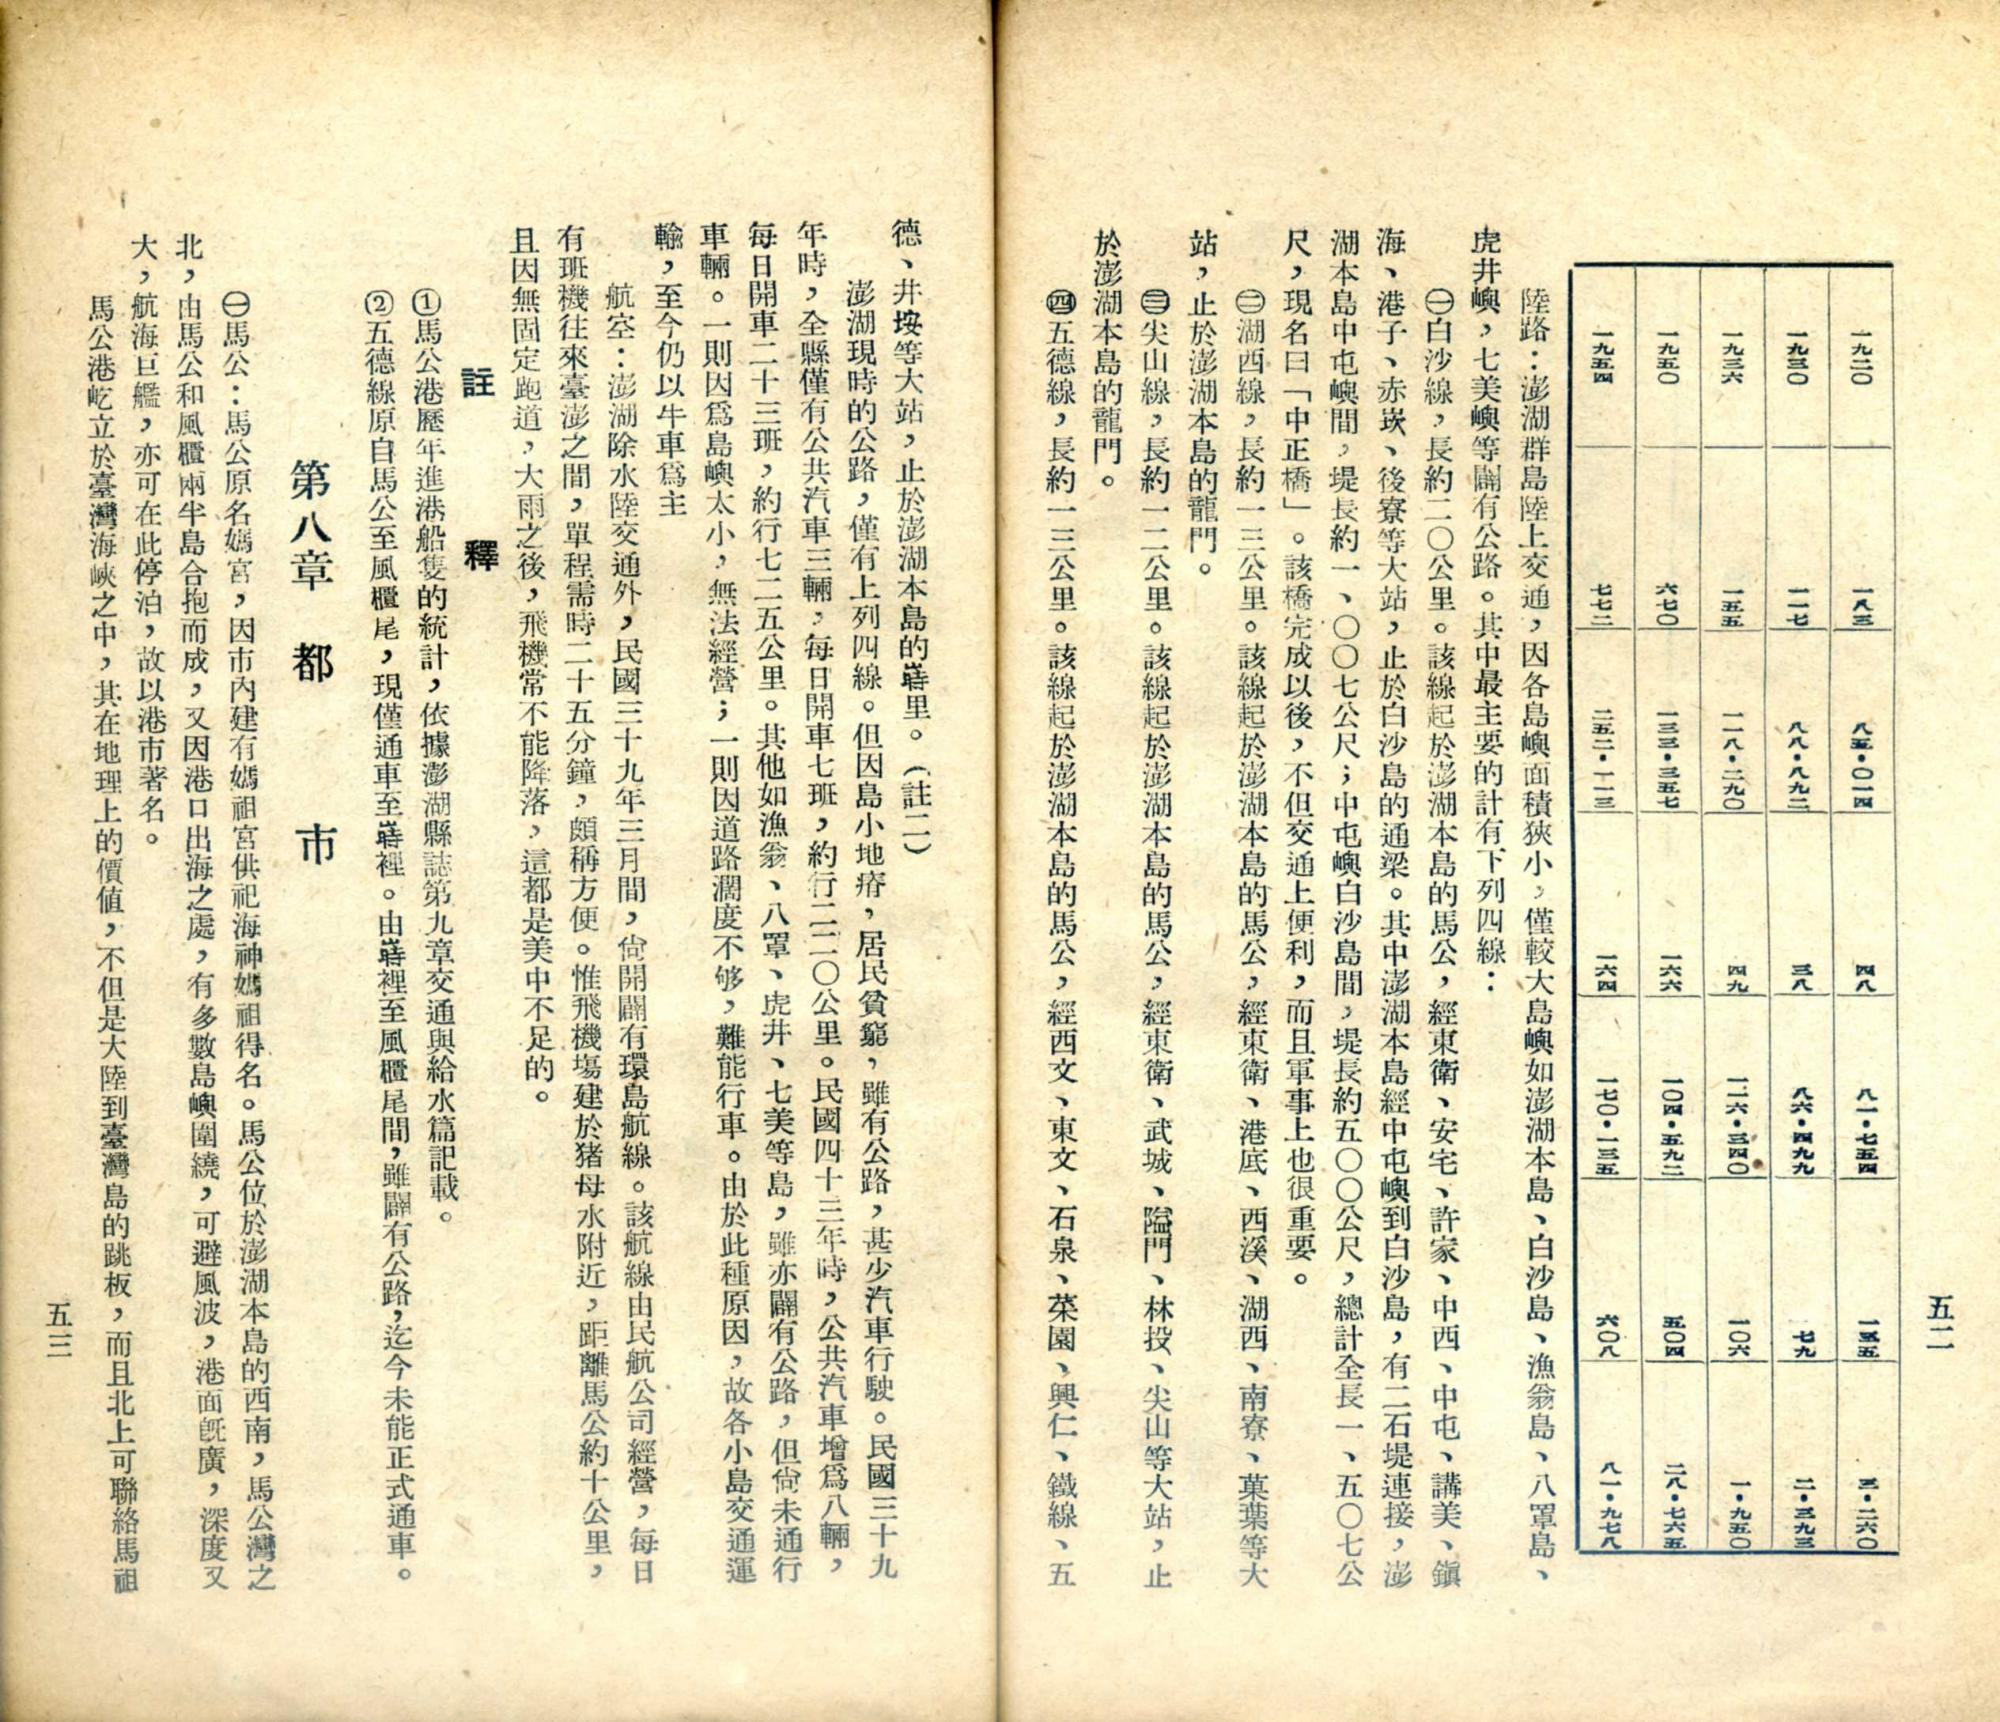 五二
一九二〇 一八三 八五・〇一四 四八 八一・七五四 一三五 三・二六〇
一九三〇 一一七 八八・八九二 三八 八六・四九九 七九 二・三九三
一九三六 一五五 一一八・二九〇 四九 一一六・三四〇 一〇六 一・九五〇
一九五〇 六七〇 一三三・三五七 一六六 一〇四・五九二 五〇四 二八・七六五
一九五四 七七二 二五二・一一三 一六四 一七〇・一三五 六〇八 八一・九七八
陸路：澎湖群島陸上交通，因各島嶼面積狹小，僅較大島嶼如澎湖本島、白沙島、漁翁島、八罩島、
虎井嶼，七美嶼等闢有公路。其中最主要的計有下列四線：
㊀白沙線，長約二〇公里。該線起於澎湖本島的馬公，經東衛、安宅、許家、中西、中屯、講美、鎭
海、港子、赤崁、後寮等大站，止於白沙島的通梁。其中澎湖本島經中屯嶼到白沙島，有二石堤連接，澎
湖本島中屯嶼間，堤長約一、〇〇七公尺；中屯嶼白沙島間，堤長約五〇〇公尺，總計全長一、五〇七公
尺，現名曰「中正橋」。該橋完成以後，不但交通上便利，而且軍事上也很重要。
㊁湖西線，長約一三公里。該線起於澎湖本島的馬公，經東衛、港底、西溪、湖西、南寮、菓葉等大
站，止於澎湖本島的龍門。
㊂尖山線，長約一二公里。該線起於澎湖本島的馬公，經東衛、武城、隘門、林投、尖山等大站，止
於澎湖本島的龍門。
㊃五德線，長約一三公里。該線起於澎湖本島的馬公，經西文、東文、石泉、菜園、興仁、鐵線、五
德、井垵等大站，止於澎湖本島的嵵里。（註二）
澎湖現時的公路，僅有上列四線。但因島小地瘠，居民貧窮，雖有公路，甚少汽車行駛。民國三十九
年時，全縣僅有公共汽車三輛，每日開車七班，約行二二〇公里。民國四十三年時，公共汽車增爲八輛，
每日開車二十三班，約行七二五公里。其他如漁翁、八罩、虎井、七美等島，雖亦闢有公路，但尙未通行
車輛。一則因爲島嶼太小，無法經營；一則因道路濶度不够，難能行車。由於此種原因，故各小島交通運
輸，至今仍以牛車爲主
航空：澎湖除水陸交通外，民國三十九年三月間，尙開闢有環島航線。該航線由民航公司經營，每日
有班機往來臺澎之間，單程需時二十五分鐘，頗稱方便。惟飛機塲建於猪母水附近，距離馬公約十公里，
且因無固定跑道，大雨之後，飛機常不能降落，這都是美中不足的。
註釋
①馬公港歷年進港船隻的統計，依據澎湖縣誌第九章交通與給水篇記載。
②五德線原自馬公至風櫃尾，現僅通車至嵵裡。由嵵裡至風櫃尾間，雖闢有公路，迄今未能正式通車。
第八章 都市
㊀馬公：馬公原名媽宮，因市內建有媽祖宮供祀海神媽祖得名。馬公位於澎湖本島的西南，馬公灣之
北，由馬公和風櫃兩半島合抱而成，又因港口出海之處，有多數島嶼圍繞，可避風波，港面旣廣，深度又
大，航海巨艦，亦可在此停泊，故以港市著名。
馬公港屹立於臺灣海峽之中，其在地理上的價值，不但是大陸到臺灣島的跳板，而且北上可聯絡馬祖
五三